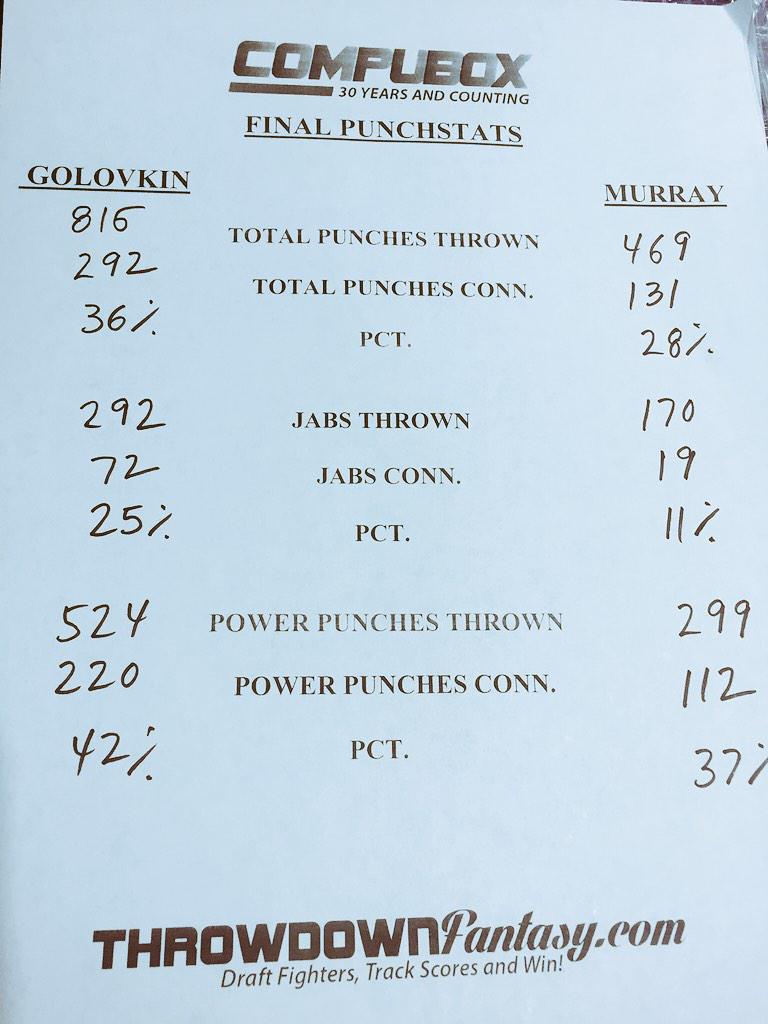 COMPUBOX
30 YEARS AND COUNTING
FINAL PUNCHSTATS
GOLOVKIN MURRAY
816 TOTAL PUNCHES THROWN 469
292 TOTAL PUNCHES CONN. 131
36% PCT. 28%
292 JABS THROWN 170
72 JABS CONN. 19
25% PCT. 11%
524 POWER PUNCHES THROWN 299
220 POWER PUNCHES CONN. 112
42% PCT. 37%
THROWDOWNFantasy.com
Draft Fighters, Track Scores and Win!